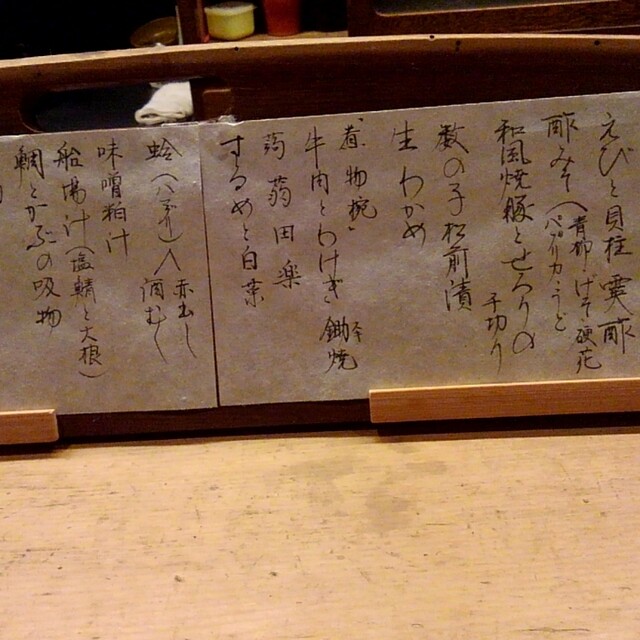 えびと貝柱 霙酢
酢みそ(青柳 げそ 硬花
うど
和風焼豚とせろりの
千切り
数の子松前漬
生わかめ
煮物椀
牛肉とわけぎ 鋤焼
蒟蒻田楽
するめと白菜
蛤 赤出し
酒むし
味噌粕汁
船場汁(塩鯖と大根)
鯛とかぶの吸物